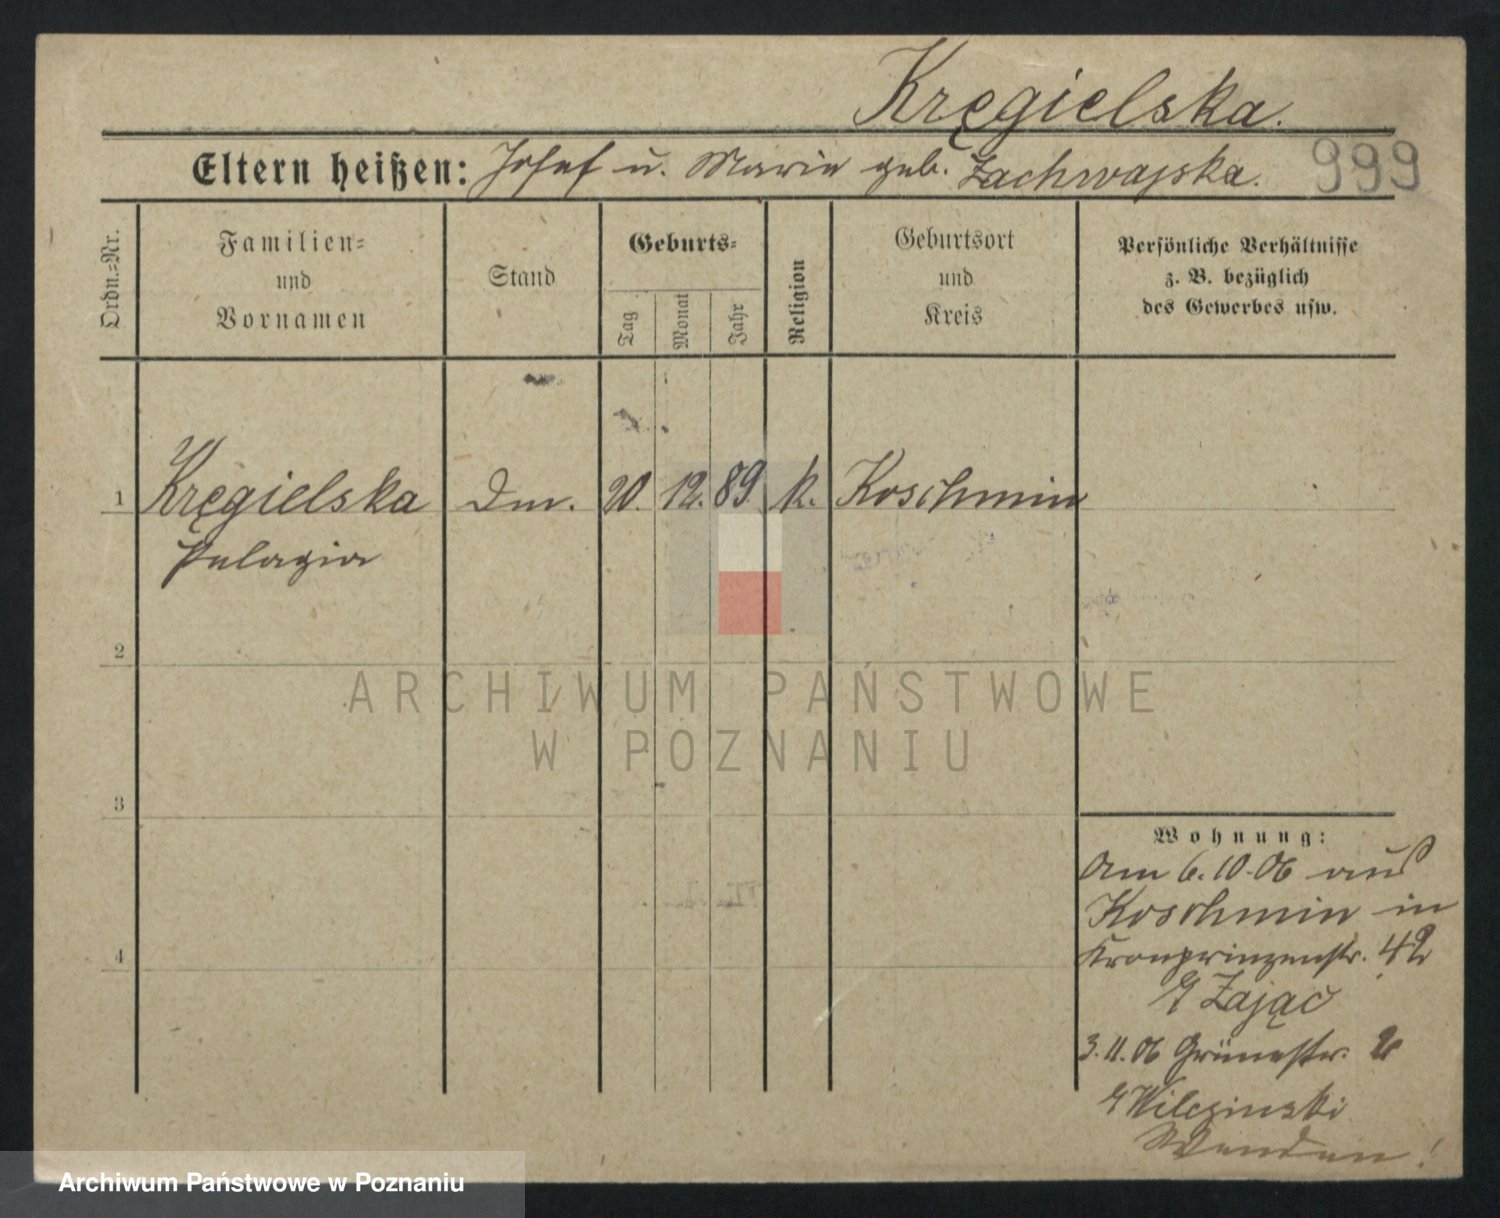 Kręgielska.
Eltern heißen: Josef u. Marie geb. Zachwajska. 999
Ordn.-Nr.
Familien-
und
Vornamen
Stand
Geburts-
Tag
Monat
Jahr
Religion
Geburtsort
und
Kreis
Persönliche Verhältnisse
z. B. bezüglich
des Gewerbes usw.
1 Kręgielska Dm. 20. 12. 89 k. Koschmin
Pelagia
2
ARCHIWUM PAŃSTWOWE
W POZNANIU
3
4
Wohnung:
Am 6.10.06 aus
Koschmin in
Kronprinzenstr. 42
Zając
3.11.06 Grünestr.
Wilczinski
Wenden!
Archiwum Państwowe w Poznaniu